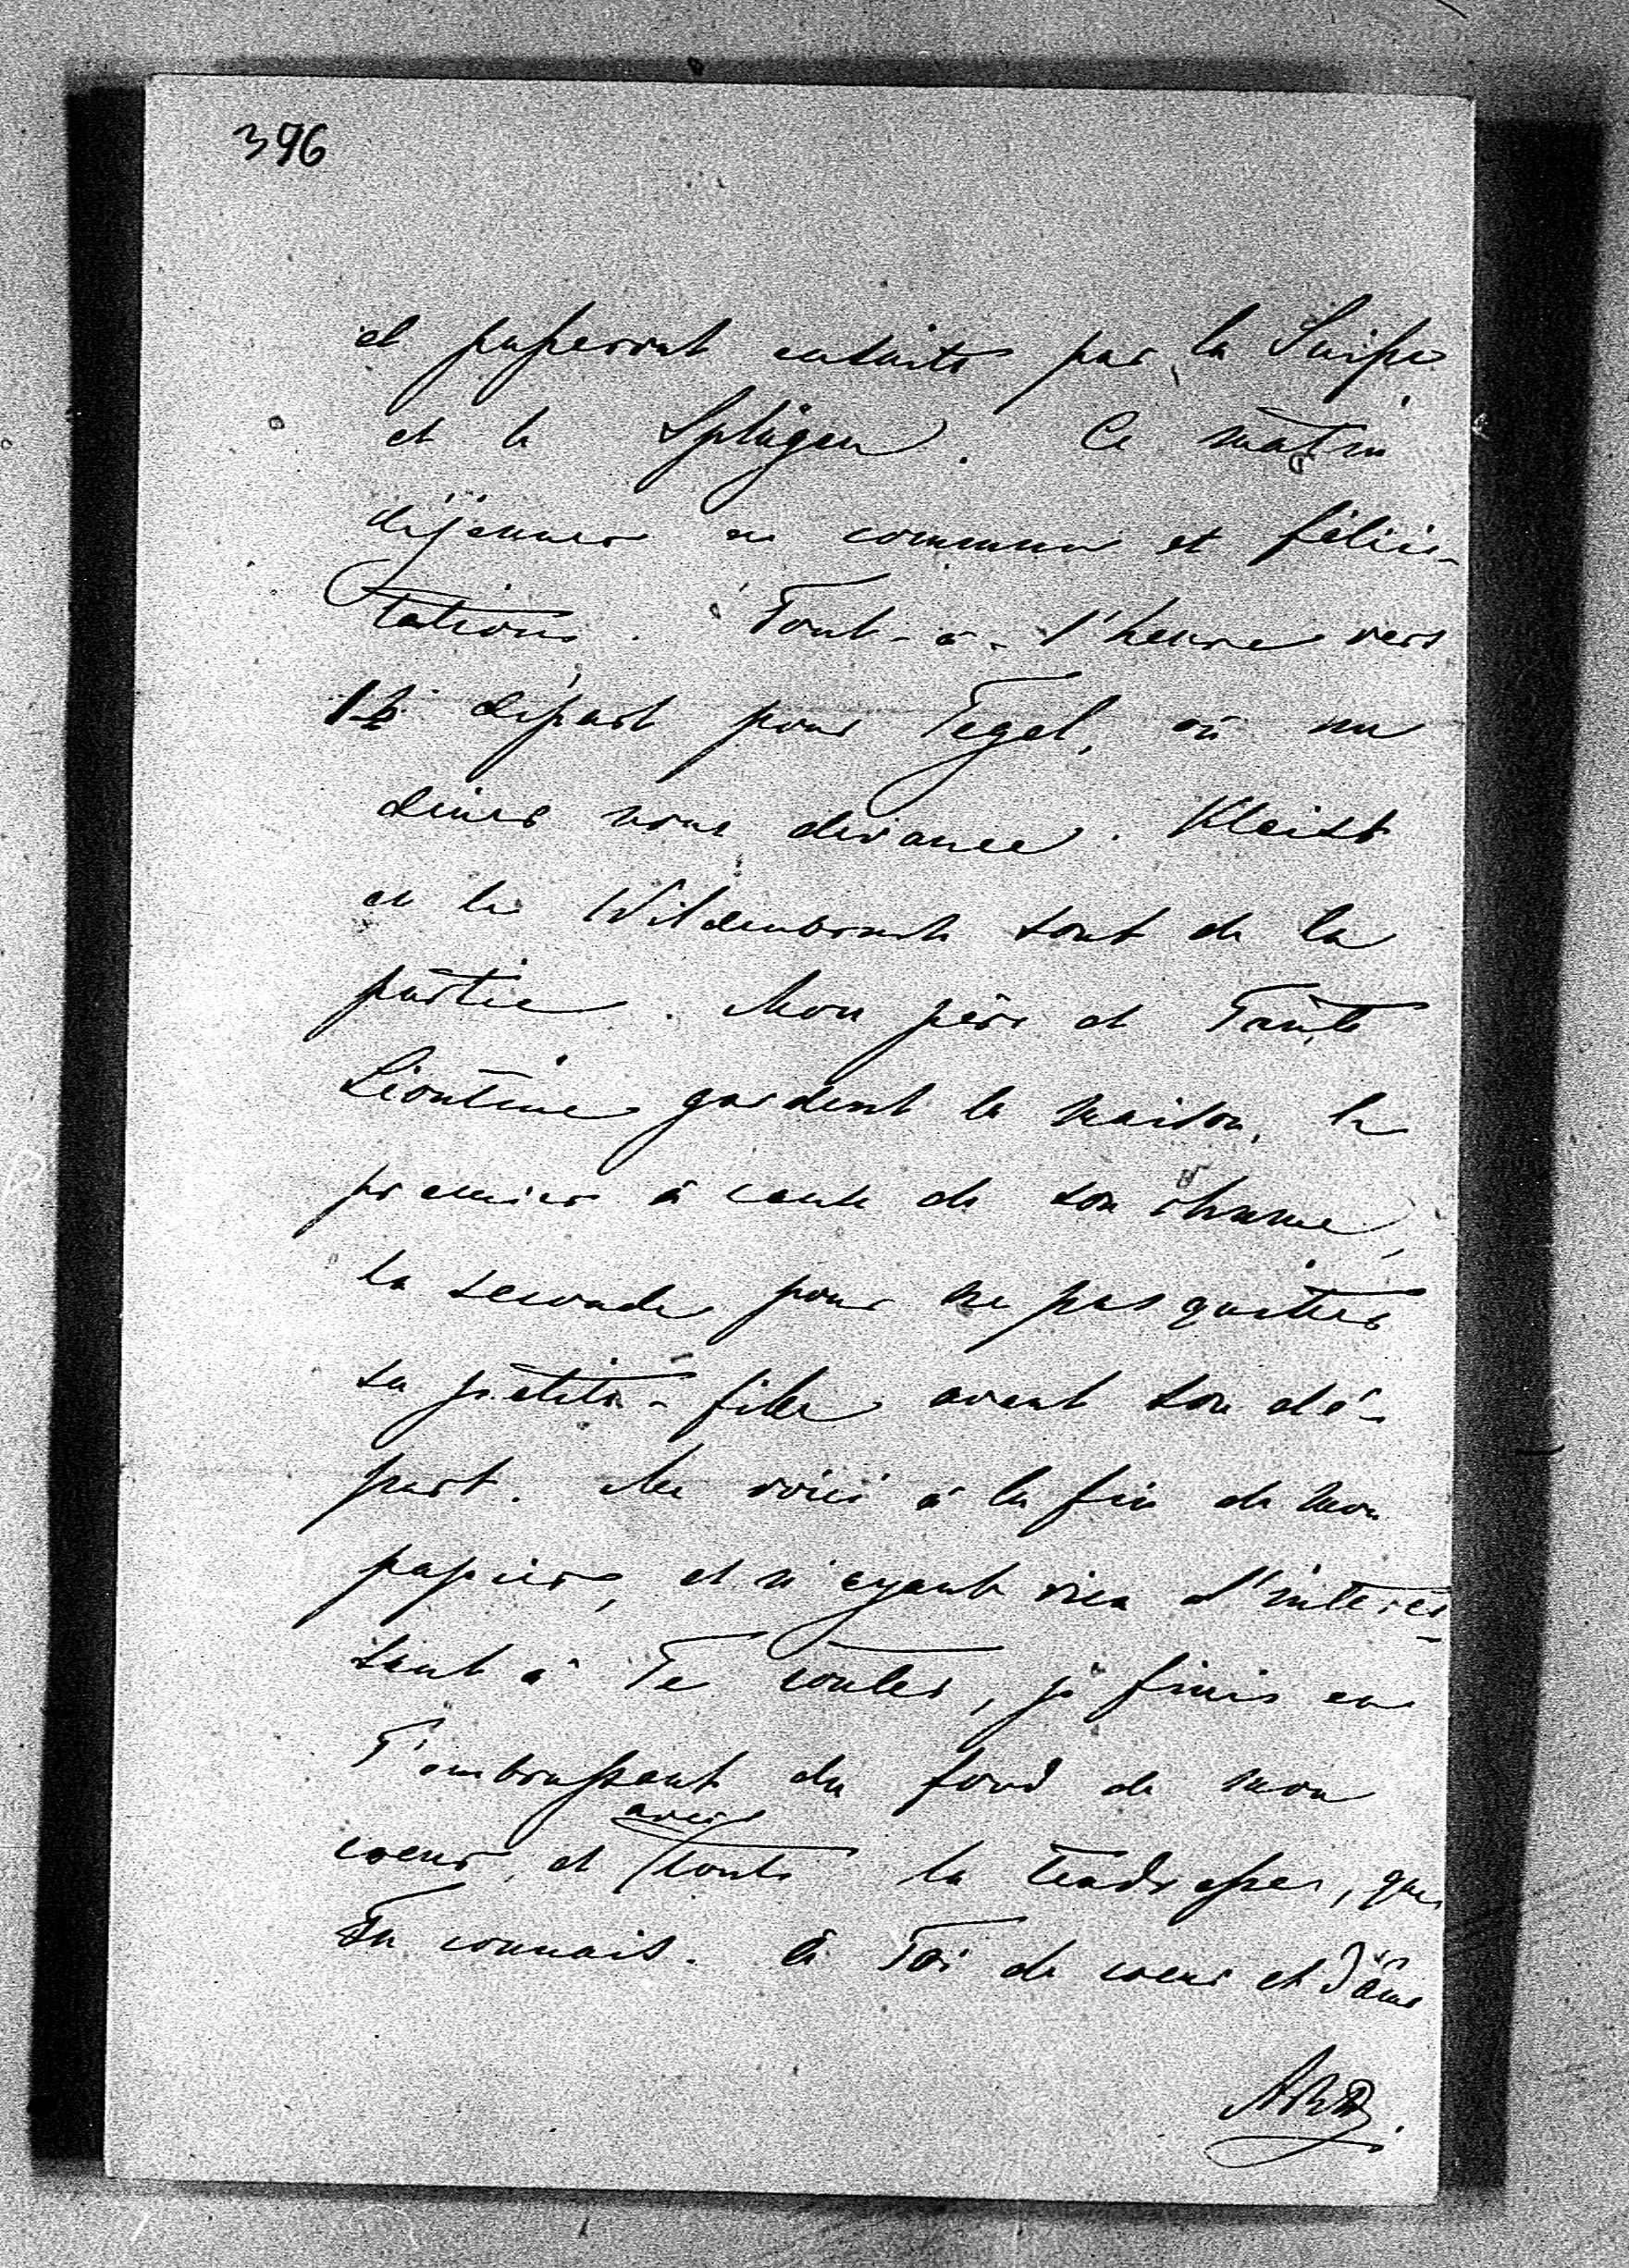 396
et passeront ensuite par la Suisse
et le Splügen. Ce matin
déjeuner en commun et félici-
tations. Tout-à-l'heure vers
12 départ pour Tegel, où un
diner nous devance. Kleist
et les Wildenbruch sont de la
partie. Mon père et Tante
Léontine gardent la maison, le
premier à cause de son rhume,
la seconde pour ne pas quitter
sa petite-fille avant son dé-
part. Me voici à la fin de mon
papier, et n'ayant rien d'intéres-
sant à Te conter, je finis en
T'embrassant du fond de mon
coeur et avec toute la tendresse, que
Tu connais. à Toi de coeur et d'âme